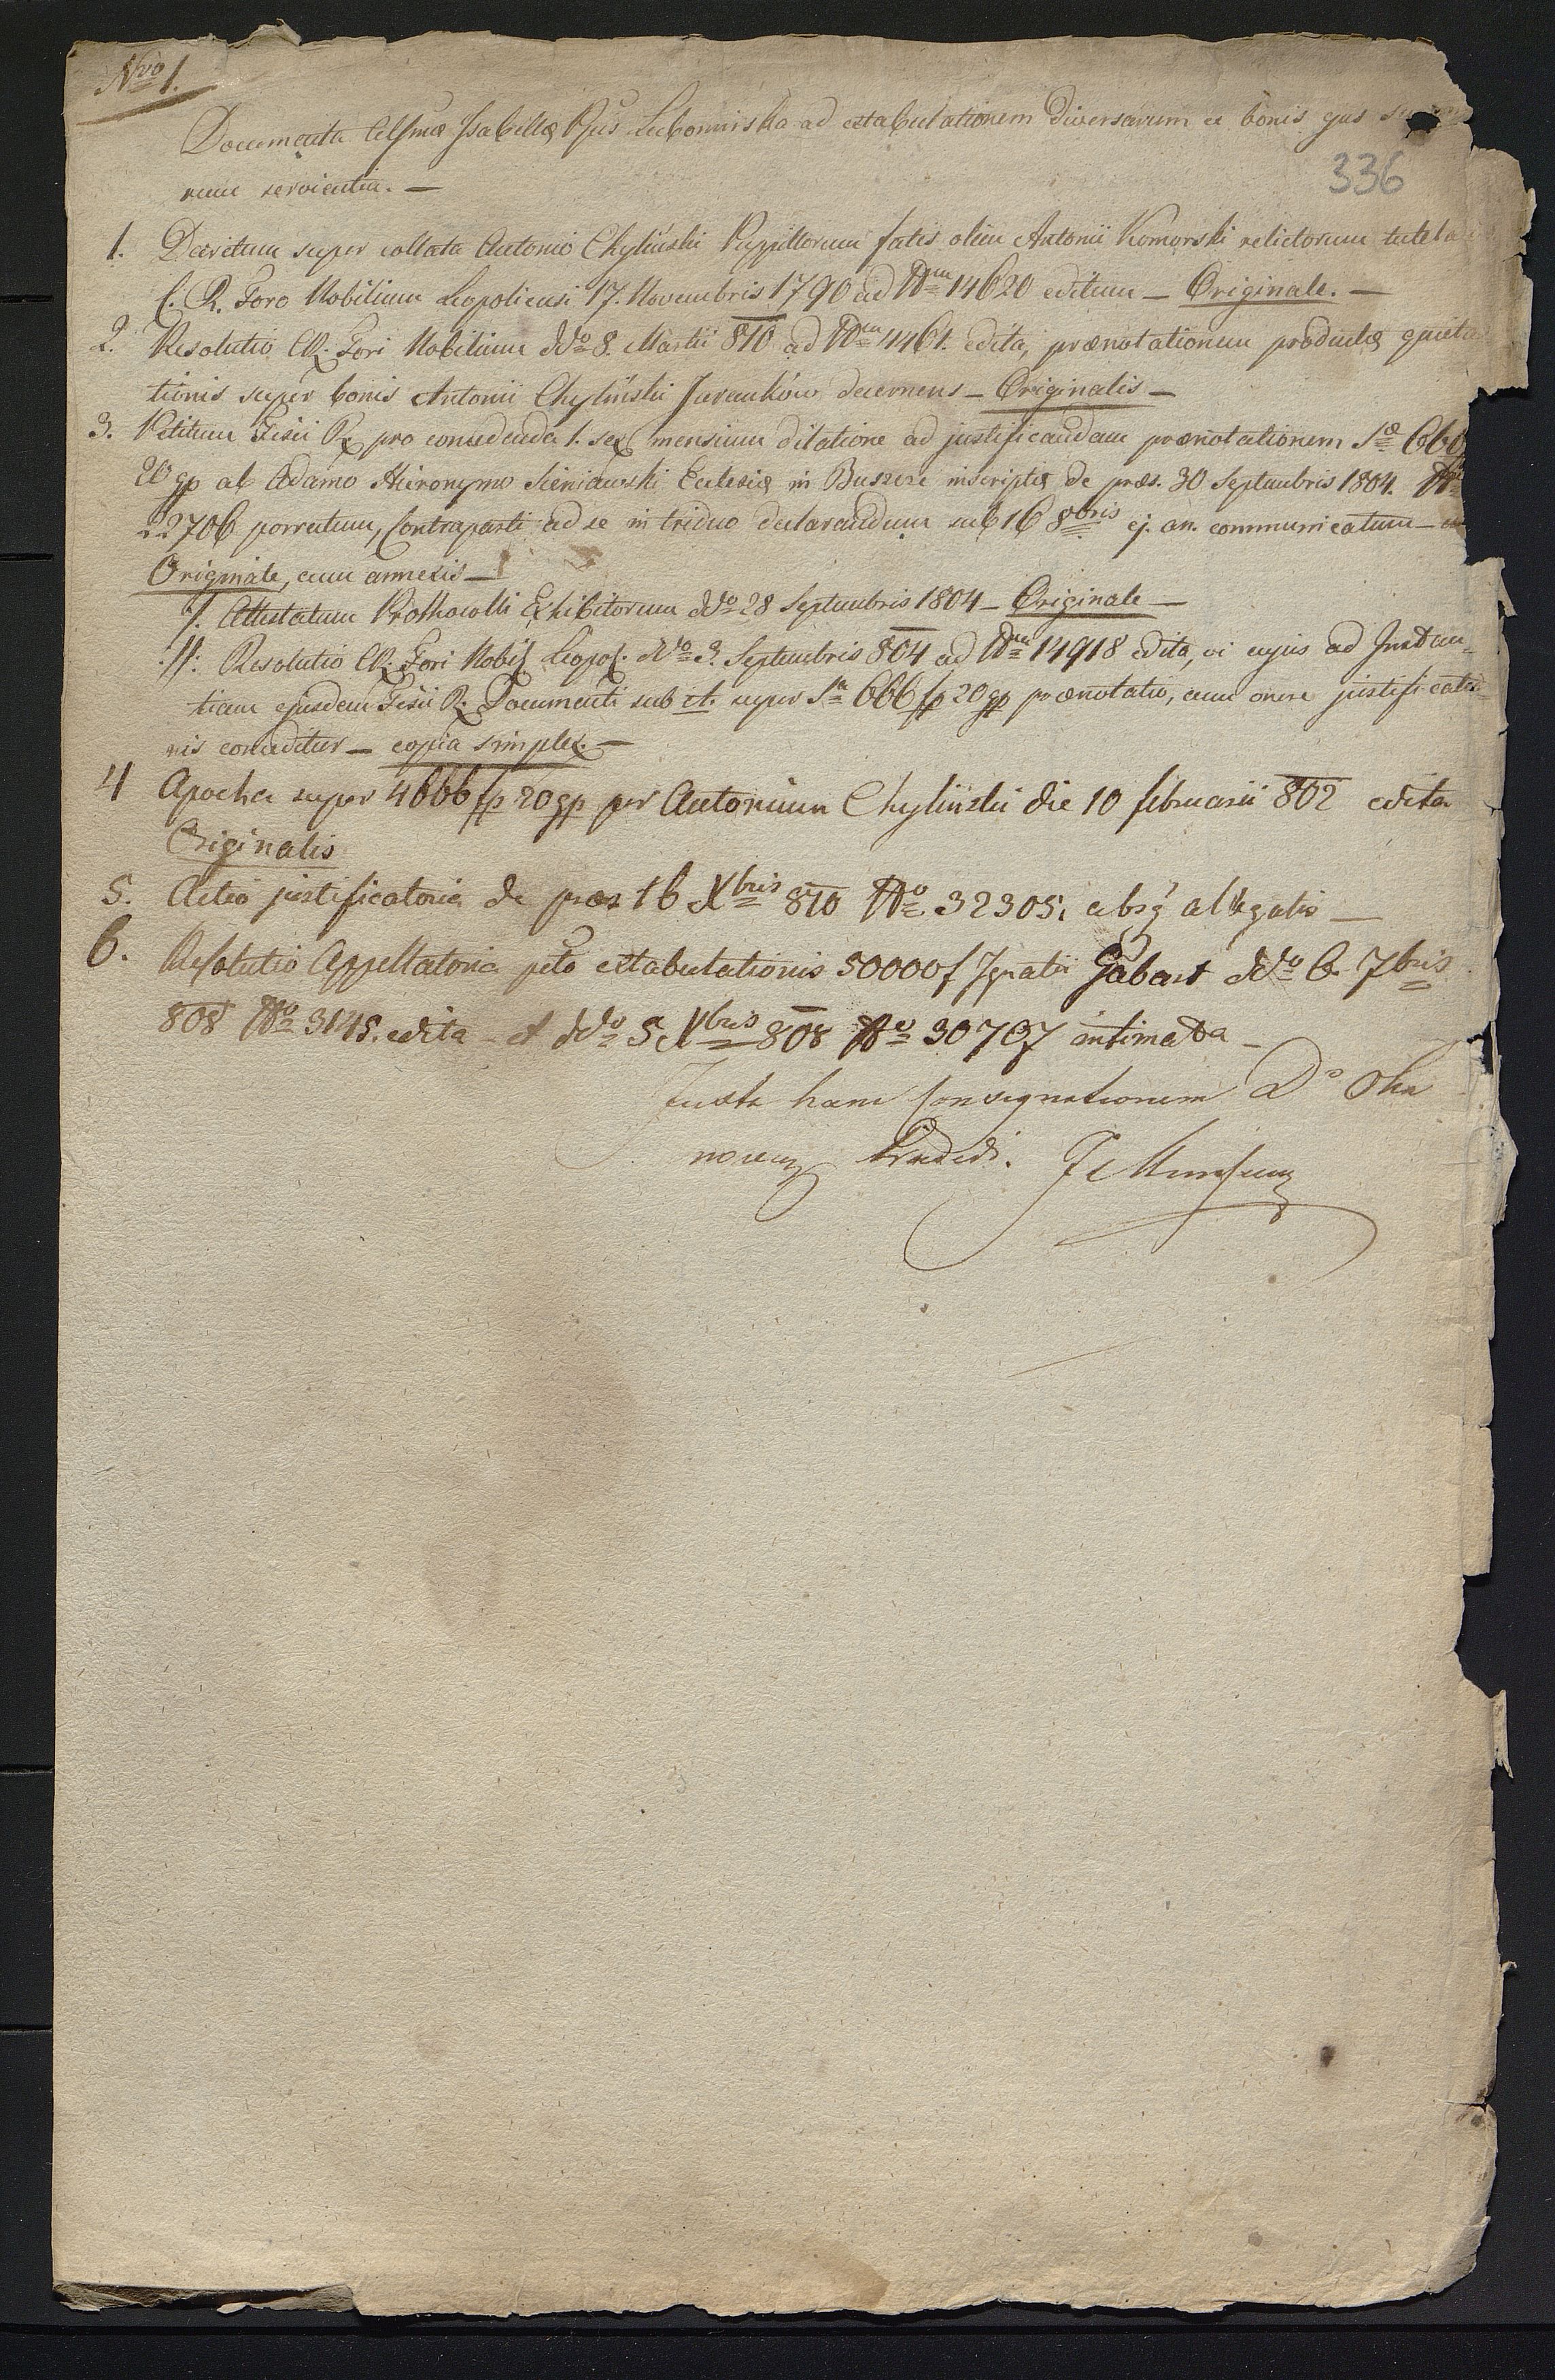 Nro 1.
Documenta Celsmæ Isabellæ Pjus Lubomirska ad extabulationem diversarum ex bonis ejus
rum servientia. —
336
1. Decretum super collata Antonio Chyliński Pupillorum fatis olim Antonii Komorski relictorum tutela
C. R. Foro Nobilium Leopoliensi 17. Novembris 1790 ad Nrum 14620 editum — Originale. —
2. Resolutio CR. Fori Nobilium ddo 8. Martii 810 ad Nrum 4461. edita, prænotationem productæ quieta
tionis super bonis Antonii Chyliński Juranków decernens — Originalis —
3. Petitum Fisci R. pro concedenda 1. sex mensium dilatione ad justificandam prænotationem Sæ 666
20 gp ab Adamo Hieronymo Sieniawski Ecclesiæ in Buszcze inscriptæ de præs. 30 Septembris 1804. Nro
22706 porrectum, Contraparti ad se in triduo declarandum sub 16 8bris ej. an. communicatum —
Originale, cum annexis —
/. Attestatum Prothocolli Exhibitorum ddo 28 Septembris 1804 — Originale —
.//: Resolutio CR. Fori Nobil. Leopol. ddo 3. Septembris 804 ad Nrum 14918 edita, vi cujus ad Instan-
tiam ejusdem Fisci R. Documenti sub A. super Sa 666 fp 20 gp prænotatio, cum onere justificatio-
nis conceditur — copia simplex. —
4 Apocha super 4666 fp 20 gp per Antonium Chyliński die 10 februarii 802 edita
Originalis
5. Actio justificatoria de præs 16 Xbris 810 Nro 32305, absq allegatis —
6. Resolutio Appellatoria pcto extabulationis 50000 f Ignatii Gabart ddo 6. 7bris
808 Nro 3145. edita — et ddo 5 Xbris 808 Nro 30707 intimata —
Juxta hanc Consignationem Do
tradidi.